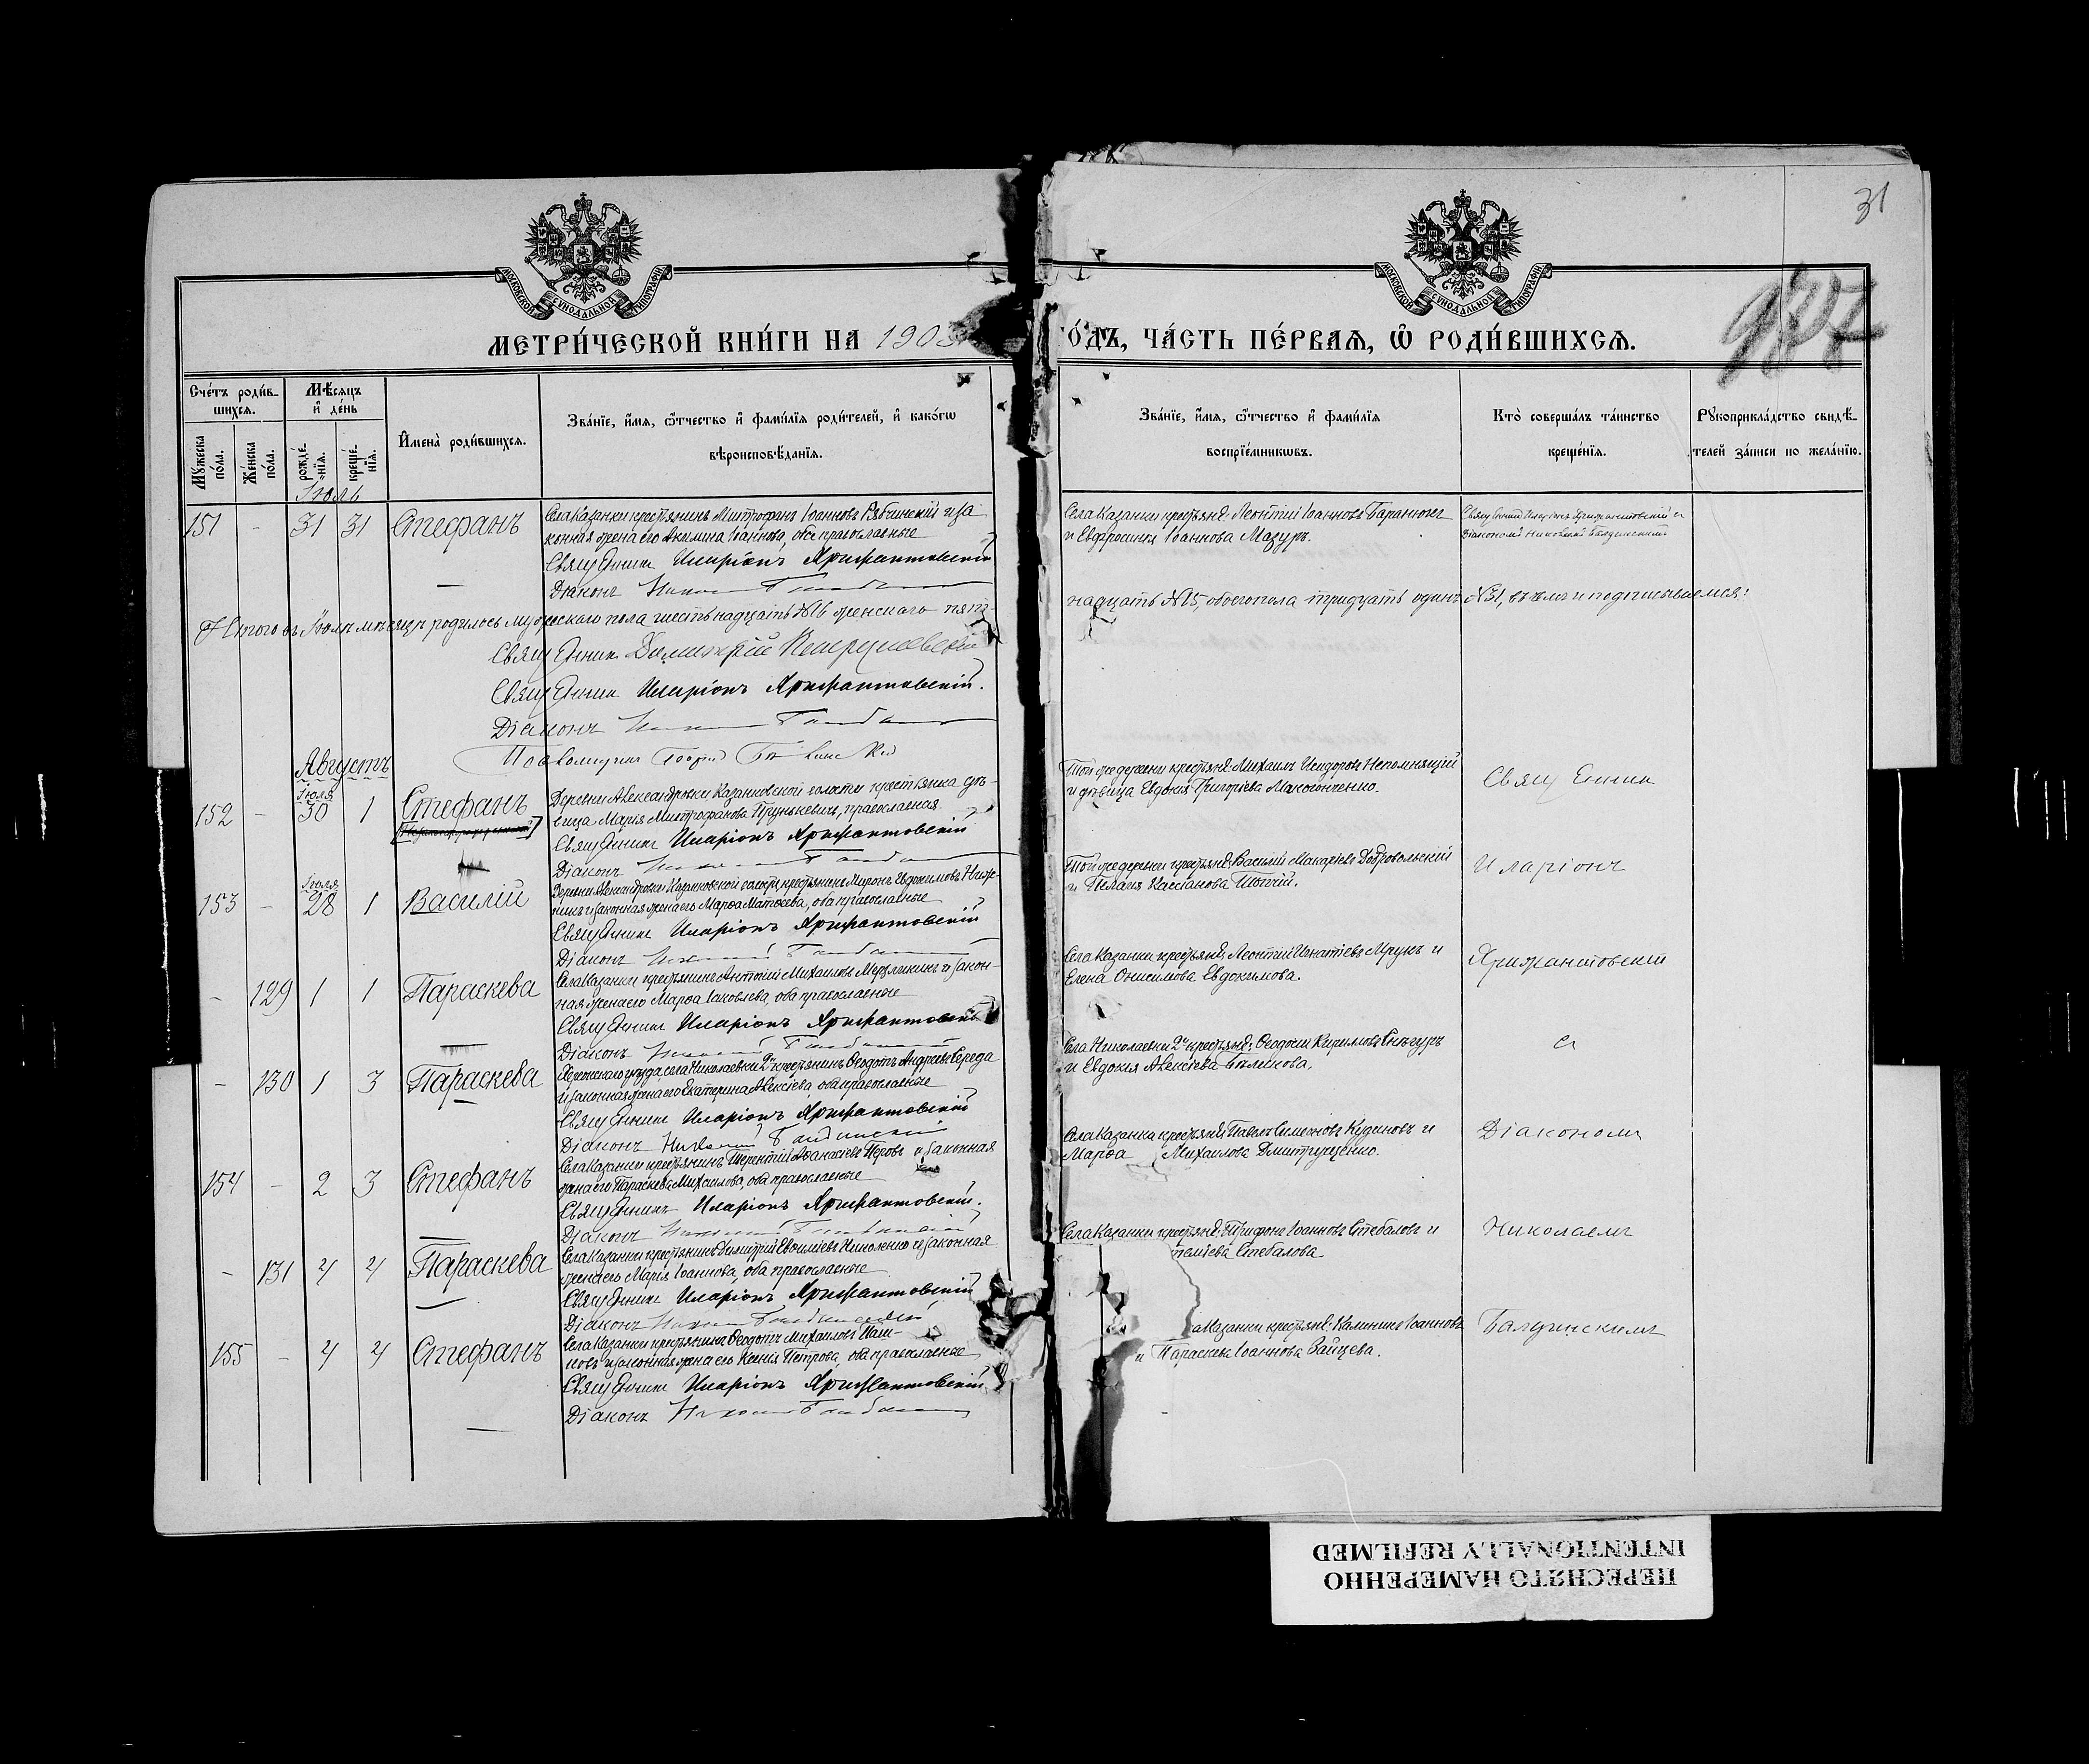 31
987
МОСКОВСКОЙ СѴНОДАЛЬНОЙ ТИПОГРАФІИ
МОСКОВСКОЙ СѴНОДАЛЬНОЙ ТИПОГРАФІИ
МЕТРИ́ЧЕСКОЙ КНИ́ГИ НА 1903
О́ДЪ, ЧА́СТЬ ПЕ́РВАѦ, Ѽ РОДИ́ВШИХСѦ.
Сче́тъ роди́в-
шихсѧ.
Мꙋжеска
по́ла.
Же́нска
по́ла.
Мѣ́сѧцъ
и҆ де́нь
рожде́-
нїѧ.
креще́-
нїѧ.
И҆мена̀ роди́вшихсѧ.
Зва́нїе, и҆́мѧ, ѻ҆́тчество и҆ фами́лїѧ роди́телей, и҆ како́гѡ
вѣроисповѣ́данїѧ.
Зва́нїе, и҆́мѧ, ѻ҆́тчество и҆ фами́лїѧ
воспрїе́мникѡвъ.
Кто̀ соверша́лъ та́инство
креще́нїѧ.
Рꙋкоприкла́дство свидѣ́-
телей за́писи по жела́нїю.
Іюль
151 - 31 31 Стефанъ
Села Казанки крестьянинъ Митрофанъ Іоанновъ Рябинскій и за-
конная жена его Акилина Іоаннова, оба православные
Священникъ Иларіонъ Хрижантовскій
Діаконъ
Села Казанки крестьян: Леонтій Іоанновъ Баранюкъ
и Евфросинія Іоаннова Мазуръ.
Священникъ Иларіонъ Хрижантовскій съ
Діакономъ Николаемъ Балдинскимъ
Итого въ Іюлѣ мѣсяцѣ родилось мужескаго пола шестьнадцать №16 женскаго пят-
надцать №15, обоего пола тридцать одинъ №31, въ чемъ и подписываемся:
Священникъ Димитрій
Священникъ Иларіонъ Хрижантовскій.
Діаконъ
Псаломщикъ Георгій
Августъ
Іюля
152 - 30 1 Стефанъ
Деревни Александровки Казанковской волости крестьянка дѣ-
вица Марія Митрофанова Прунькевичъ, православная
Священникъ Иларіонъ Хрижантовскій
Діаконъ
Той же деревни крестьян: Михаилъ Исидоровъ Непомнящій
и дѣвица Евдокія Григоріева Макогонченко.
Священникъ
Іюля
153 - 28 1 Василій
Деревни Александровки Казанковской волости, крестьянинъ Миронъ Евдокимовъ Ниж-
никъ и законная жена его Марѳа Матѳеева, оба православные
Священникъ Иларіонъ Хрижантовскій
Діаконъ
Той же деревни крестьян: Василій Макаріевъ Добровольскій
и Пелагія Кассіанова Топчій.
Иларіонъ
- 129 1 1 Параскева
Села Казанки крестьянинъ Антоній Михаиловъ Мерзликинъ и закон-
ная жена его Марѳа Іаковлева, оба православные
Священникъ Иларіонъ Хрижантовскій
Діаконъ
Села Казанки крестьян: Леонтій Игнатіевъ Мрукъ и
Елена Онисимова Евдокимова.
Хрижантовскій
- 130 1 3 Параскева
Херсонскаго уѣзда, села Николаевки 2й крестьянинъ Ѳеодотъ Андреевъ Середа
и законная жена его Екатерина Алексіева, оба православные
Священникъ Иларіонъ Хрижантовскій
Діаконъ Николай Балдинскій
Села Николаевки 2й крестьян: Ѳеодосій Кириловъ Снѣгуръ
и Евдокія Алексіева Бѣликова.
съ
154 - 2 3 Стефанъ
Села Казанки крестьянинъ Терентій Аѳанасіевъ Перовъ и законная
жена его Параскева Михаилова, оба православные
Священникъ Иларіонъ Хрижантовскій.
Діаконъ
Села Казанки крестьян: Павелъ Симеоновъ Кудиновъ и
Марѳа Михаилова Дмитрученко.
Діакономъ
- 131 4 4 Параскева
Села Казанки крестьянинъ Димитрій Евѳиміевъ Николенко и законная
жена его Марія Іоаннова, оба православные
Священникъ Иларіонъ Хрижантовскій
Діаконъ
Села Казанки крестьян: Трифонъ Іоанновъ Стебаловъ и
Стебалова
Николаемъ
155 - 4 4 Стефанъ
Села Казанки крестьянинъ Ѳеодотъ Михаиловъ Паш-
ковъ и законная жена его Ксенія Петрова, оба православные
Священникъ Иларіонъ Хрижантовскій
Діаконъ
Казанки крестьян: Калиникъ Іоанновъ
и Параскева Іоаннова Зайцева.
Балдинскимъ
ПЕРЕСНЯТО НАМЕРЕННО
INTENTIONALLY REFILMED